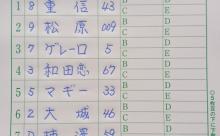 1 8 重信 43 B D
C E
2 9 松原 009 B D
C E
3 7 ゲレーロ 5 B D
C E
4 3 和田恋 67 B D
C E
5 5 マギー 33 B D
C E
6 2 大城 46 B D
C E
7